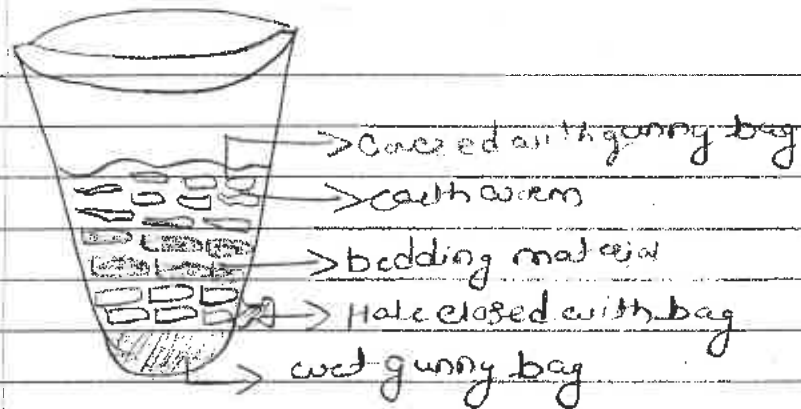 Covered with gunny bag
earth worm
bedding material
Hole closed with bag
wet gunny bag